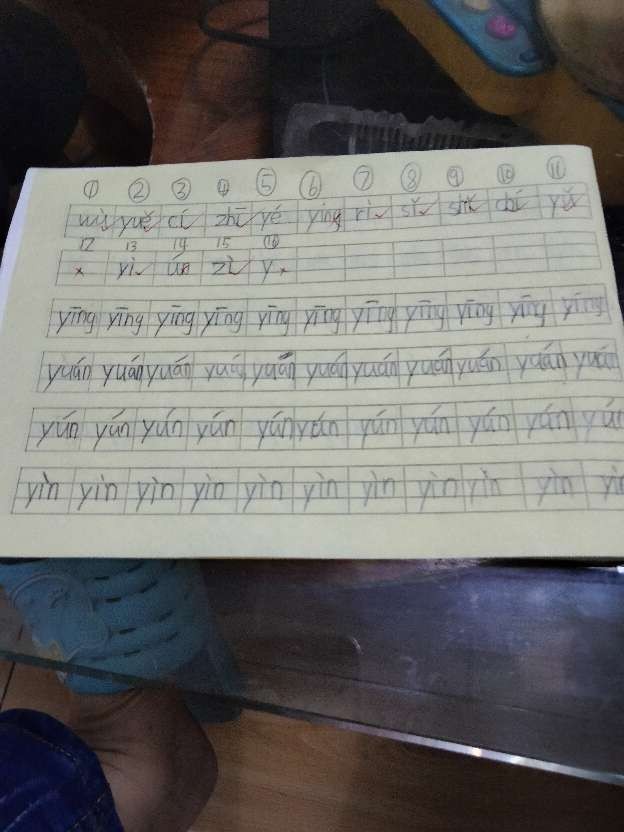 ① ② ③ ④ ⑤ ⑥ ⑦ ⑧ ⑨ ⑩ ⑪
yuě cí zhī yé yīng rì sǐ shǐ chí yǔ
12 13 14 15 ⑯
yì ún zì y
yīng yīng yīng yīng yīng yīng yīng yīng yīng yīng yīng
yuán yuán yuán yuá yuán yuán yuán yuán yuán yuán yuá
yún yún yún yún yún yún yún yún yún yún yú
yìn yìn yìn yìn yìn yìn yìn yìn yìn yìn yì